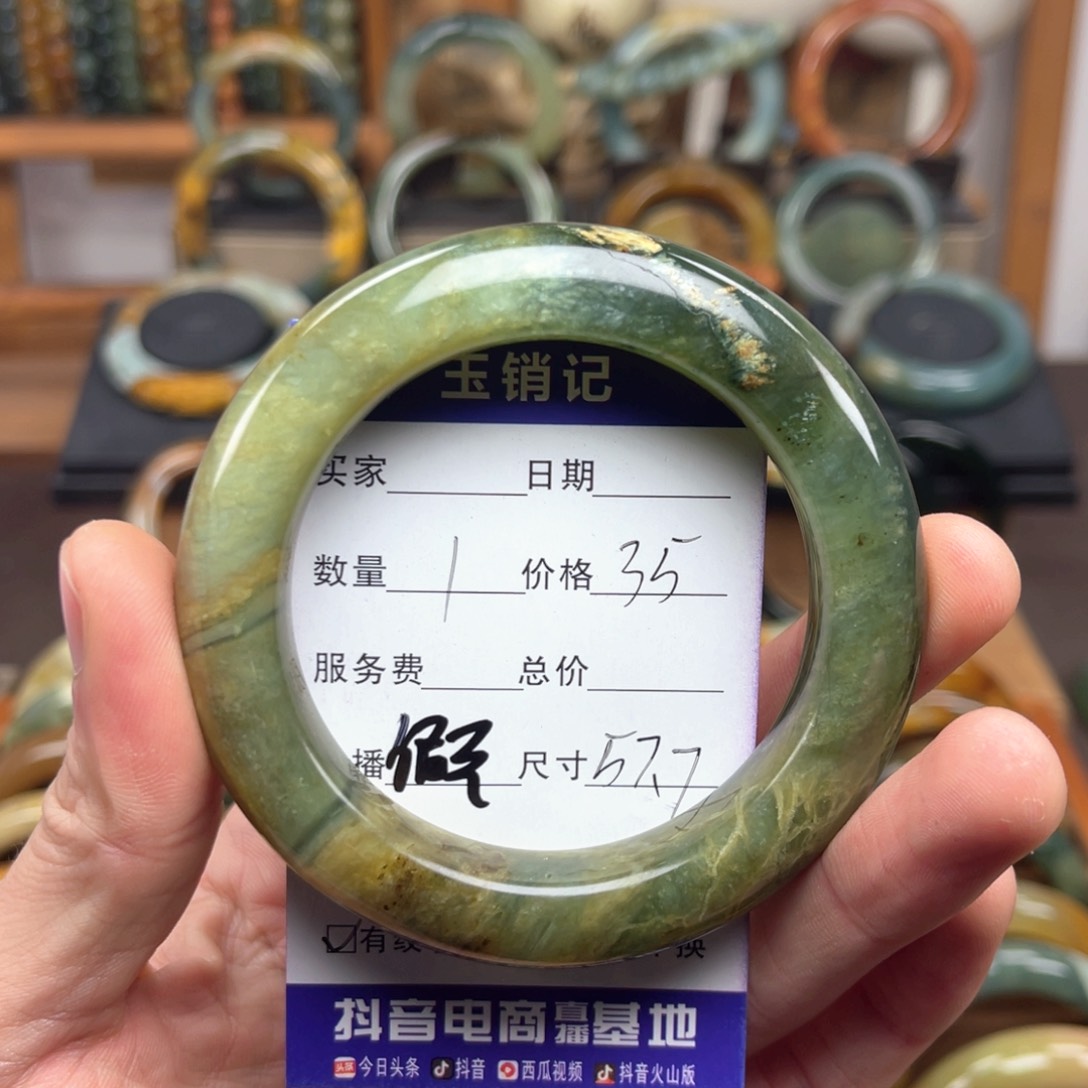 玉销记
买家 日期
数量 1 价格 35
服务费 总价
播 假 尺寸 57.7
☑有纹 换
抖音电商直播基地
头条 今日头条 抖音 西瓜视频 抖音火山版